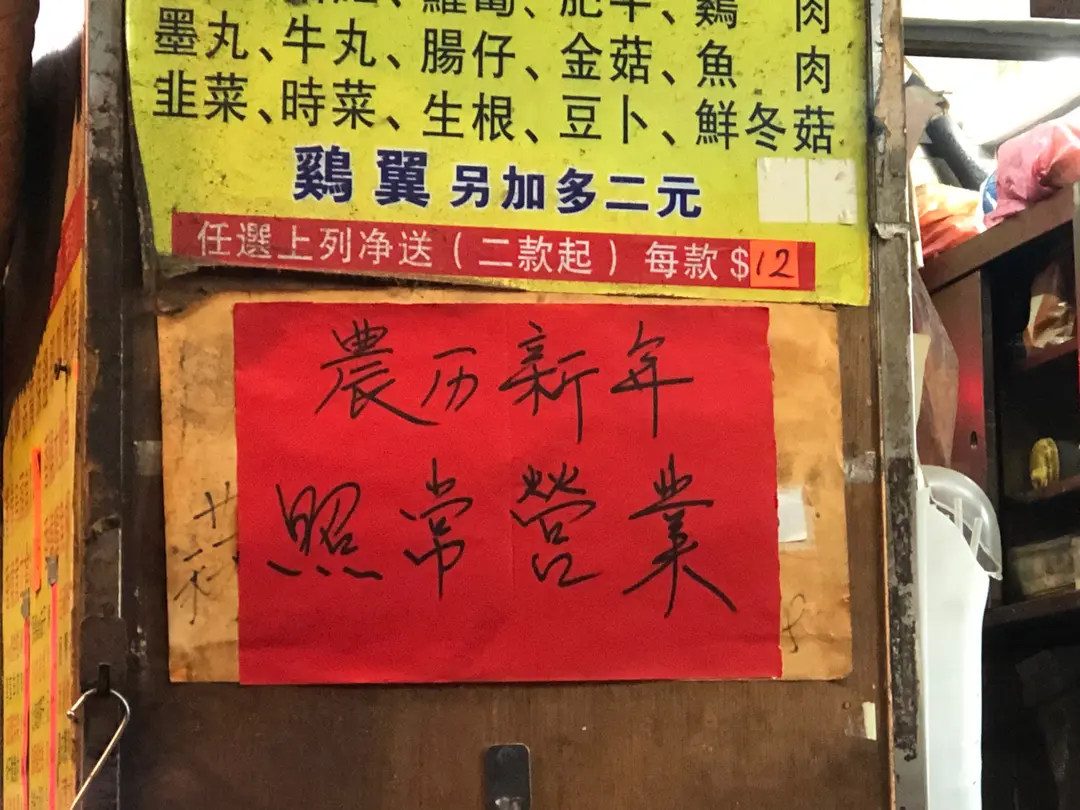 蘿蔔、肥牛、鷄肉
墨丸、牛丸、腸仔、金菇、魚肉
韭菜、時菜、生根、豆卜、鮮冬菇
鷄翼 另加多二元
任選上列净送（二款起）每款$12
農历新年
照常營業